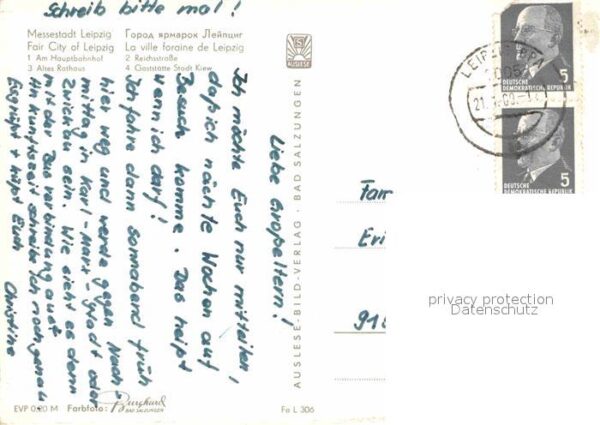 Schreib bitte mal!
Messestadt Leipzig
Fair City of Leipzig
1 Am Hauptbahnhof
3 Altes Rathaus
Город ярмарок Лейпциг
La ville foraine de Leipzig
2 Reichsstraße
4 Gaststätte Stadt Kiew
AUSLESE
Liebe Großeltern!
Ich möchte Euch nur mitteilen,
daß ich nächte Wochen auf
Besuch komme. Das heißt
wenn ich darf!
Ich fahre dann sonnabend früh
hier weg und werde gegen Nach-
mittag in Karl-Marx-Stadt oder
Zwickau sein. Wie sieht es denn
mit der Busverbindung aus?
Ankunftszeit schreibe ich noch genau.
Es grüßt + küßt Euch
Christine
EVP 0,20 M
Farbfoto: Burghard
BAD SALZUNGEN
Fa L 306
AUSLESE-BILD-VERLAG · BAD SALZUNGEN
LEIPZIG
21.
5
DEUTSCHE
DEMOKRATISCHE REPUBLIK
5
DEUTSCHE
DEMOKRATISCHE REPUBLIK
Fam
Eri
privacy protection
Datenschutz